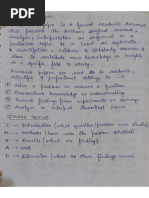 paper is a formal academic document
that presents the authors original research,
analysis, interpretation or argument on a
particular topic. It is based on systematic
investigation, evidence & scholarly sources &
aims to contribute new knowledge or insight
to a specific field of study.
Research papers are used to in academic,
scientific & professional settings to
① Solve a problem or answer a question
② knowledge or understanding
③ findings from experiments or surveys
④ Analyze or interpret theoretical issues
IMRAD Format
I - Introduction (what question/problem was studied)
M - Methods (how was the problem studied)
R - Results (what are findings)
A - and
D - Discussion (what do these findings mean)